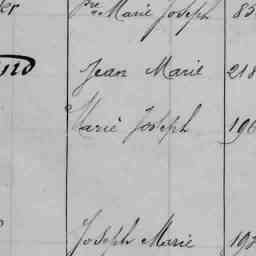 Marie Joseph 85
Jean Marie 218
Marie Joseph 196
Joseph Marie 192